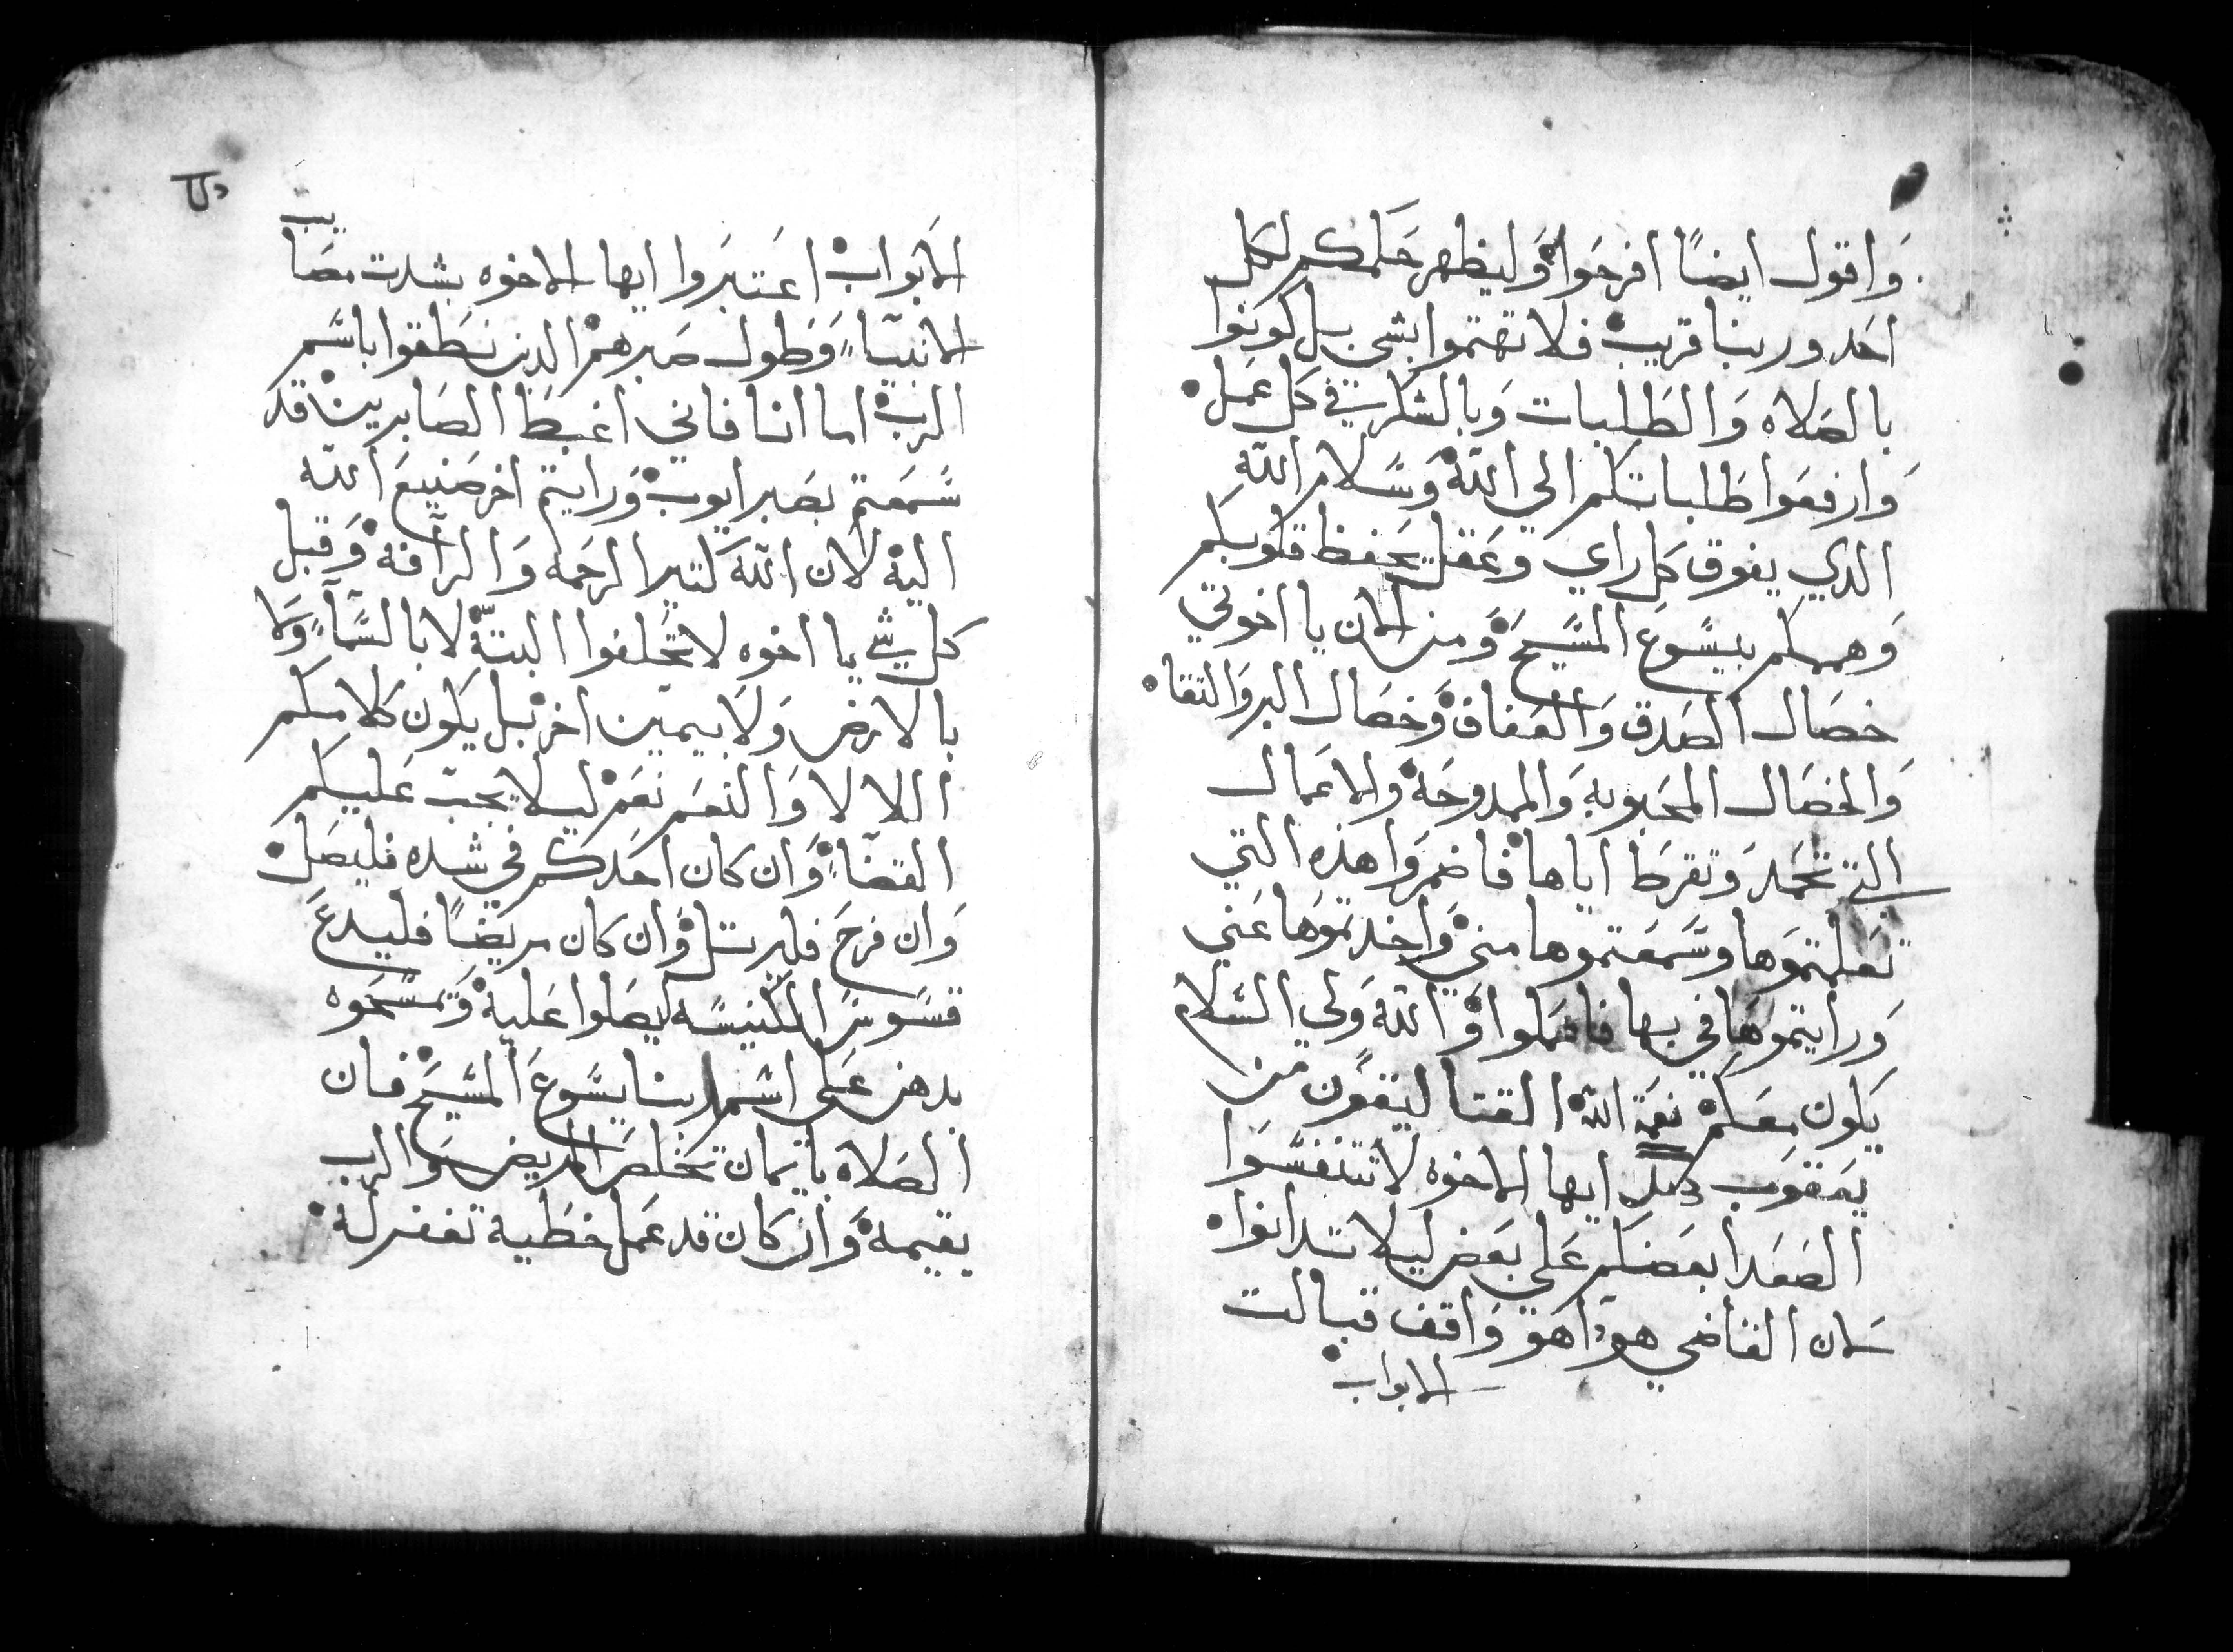 وَاقول ايضاً افرحَوا وَليظهر حَلمكم لكل
احَد وربنا قريب فلا تهتموا بشي بل كونوا
بالصَلاه وَالطَلبات وَبالشكر في كل عَمل
وَارفعَوا طَلباتكم الي اللّه وَسَلام اللّه
الدي يفوق كل راي وعَقل يحَفظ قلوبكم
وَهممكم بيسَوع المسَيحَ وَمن الان يا اخوتي
خصَال الصَدق وَالعَفاف وَخصَال البر وَالتقا
وَالخصَال المحَبوبه وَالممدوحَه والاعَمال
التي تحَمد وَتقرط اياها فاضمروَا هذه التي
تعَلمتموَها وسَمعَتموها مني وَاخدتموَها عَني
وَرايتموهَا في بها فاعَملوا وَاللّه وَلي السَلام
يَكون معَكم نعَمة اللّه القتاليقون من
يعَقوب دلك ايها الاخوه لا تتنفسَوا
الصَعَدا بعَضكم عَلي بعَض ليلا تدانوا
لان القاضي هودَا هوَ وَاقف قبالت
الابواب
الابَواب اعَتبرَوا ايها الاخوه بشدت مصَايب
الانبيآء وَطول صَبرهم الدين نطَقوا باسَم
الرب اما انا فاني اغبط الصَابرين قد
سَمعَتم بصَبر ايوب وَرايتم اخر صَنيعَ اللّه
اليه لان اللّه كتير الرحَمه وَالرافه وَقبل
كل شي يا اخوه لا تحَلفوا البتّه لا بالسَمآء وَلا
بالارض وَلا بيمين اخر بل يكون كلامكم
اللا لا وَالنعَم نعَم ليلا يجب عَليكم
القضآء وَان كان احَدكم في شده فليصَل
وَان فرحَ فليرتل وَان كان مريضاً فليدعَ
قسَوسَ الكنيسَه ليصَلوا عَليه وَتمسَحَوه
بدهن عَلي اسَم ربنا يسَوعَ المسَيحَ فان
الصَلاه بايمان تخلصَ المريض وَالرب
يقيمه وَان كان قد عَمل خطَية تغفر له